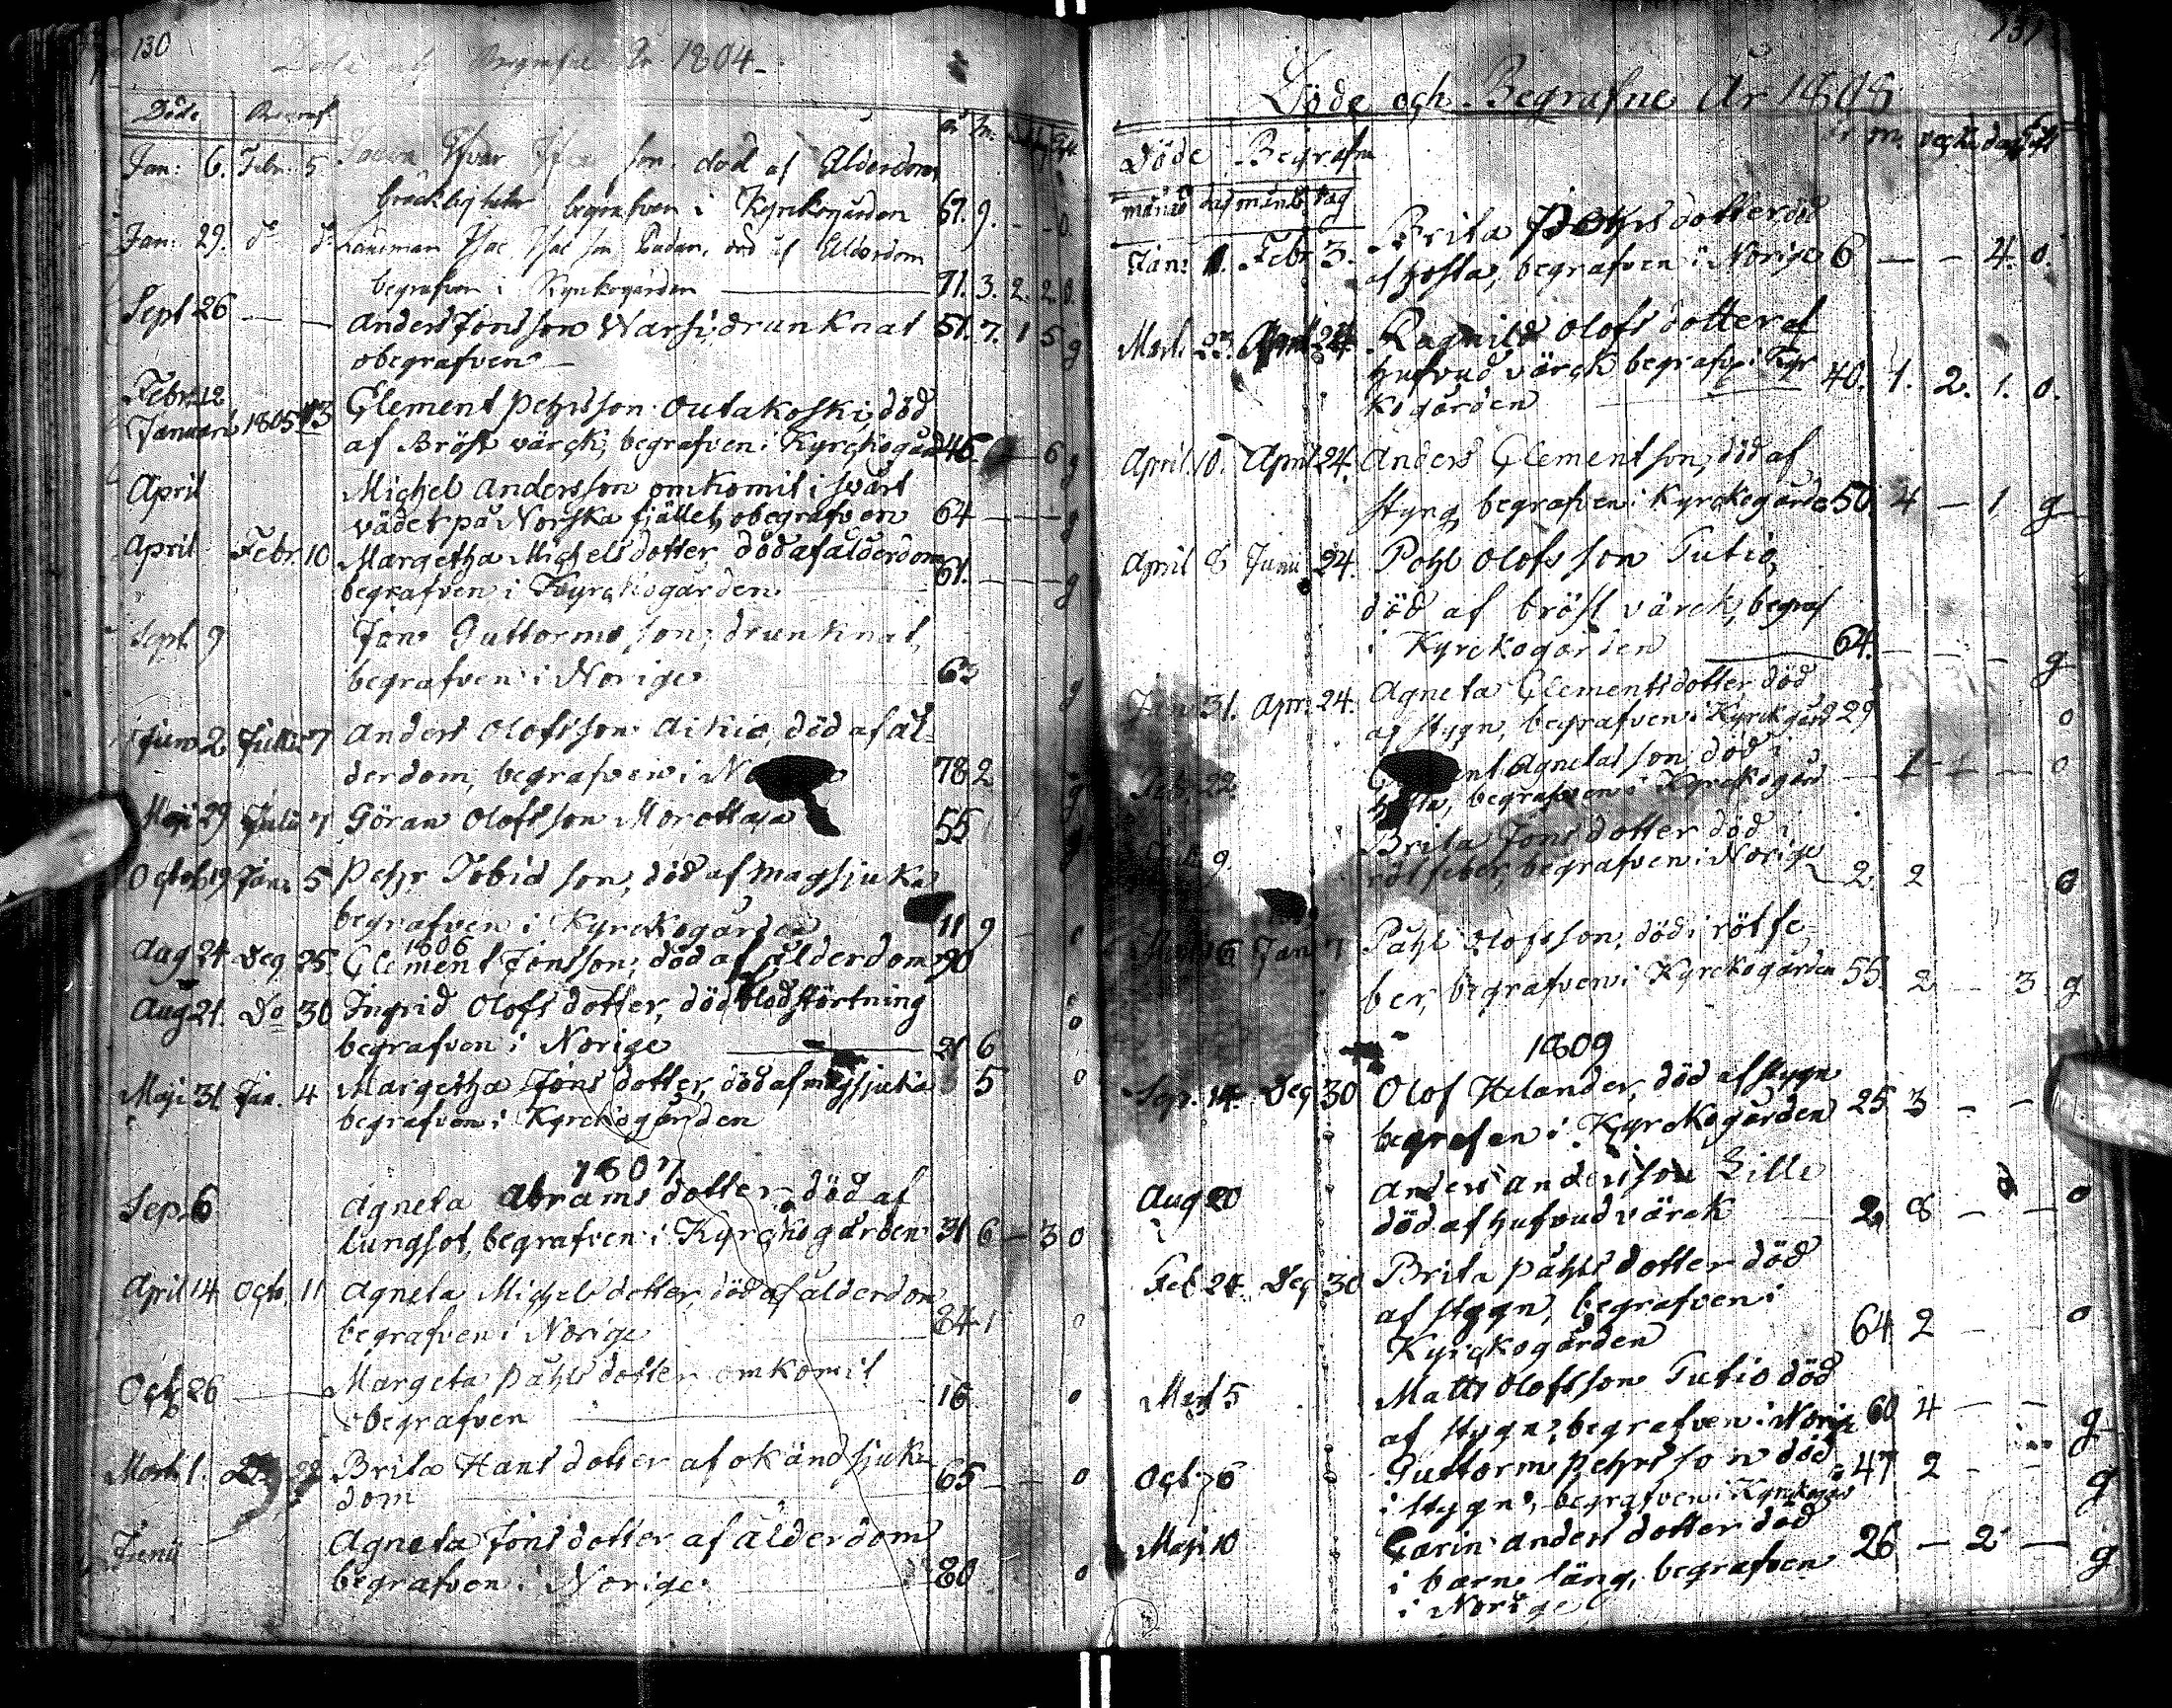 130
Begrafne År 1804
Döde Begraf
Jan: 6. Febr: 5 död af Ålderdoms
bräckligheter begrafven i Kyrckogården 67. 9. - - 0.
Jan: 29. do do Länsman Isac Isac son död af Ålderdom
begrafven i Kyrckogården 71. 3. 2. 2 0.
Sept 26 — — Anders Jons son Warsi, drunknat 51. 7. 1 5 g
obegrafven —
Febr. 12
Januari 1805 13 Clement Pehrsson Outakoski, död
af Bröst värck, begrafven i Kyrckogård 46. — 6 g
April Michel Andersson omkomit i svårt
vädet på Norska fjället, obegrafven 64 — — g
April Febr. 10 Margetha Michelsdotter, död af ålderdom
begrafven i Kyrckogården 61. — — g
Sept 9 Jon Guttorms son, drunknat,
begrafven i Norige 63 g
Junii 2 Julii 7 Anders Olofsson Aikio, död af ål=
derdom, begrafven i 78 2 g
Maji 29 Julii 7 Göran Olofsson Morottaja 55 g
Octob 19 Jan: 5 Pehr Tobias son, död af magsjuka
begrafven i Kyrckogården 11 9
1806
Aug 24 Dec 25 Clement Jonsson, död af ålderdom 90
Aug 21. Do 30 Ingrid Olofsdotter, död blodstörtning
begrafven i Norige 21 6 0
Maji 31 Jan. 4 Margetha Jons dotter, död af magsjuka 5 0
begrafven i Kyrckogården
1807
Sep. 6 Agneta Abrams dotter, död af
lungsot, begrafven i Kyrckogården 31 6 — 3 0
April 14 Octb. 11 Agneta Michels dotter, död af ålderdom
begrafven i Norige 84 1 0
Octb 26 — Margeta Påhls dotter omkomit
obegrafven 16 0
Mart. 1. Brita Hans dotter af okänd sjuk=
dom 65 — — 0
Junii Agneta Jons dotter af ålderdom
begrafven i Norige 80 0
131
Döde och Begrafne År 1808
Döde Begrafne
månad dag månd dag
år m. veckr dag
Jan: 1. Febr 3. Brita Pehrs dotter, död
af hosta, begrafven i Norige 6 — — 4. 0.
Mart. 23. April 24. Ragnild Olofs dotter af
hufvud värck begrafv. i Kyr
kogården 40. 1. 2. 1. 0.
April 10. April 24. Anders Clementson, död af
styng, begrafven i Kyrckogården 50. 4 — 1 g
April 8 Junii 24. Pohl Olofs son Tutio,
död af bröst värck, begraf
i Kyrckogården 64. — — — g
Jan 31. Apr: 24. Agneta Clementsdotter död
af stygn, begrafven i Kyrckgård 29 0
Febr. 22. Agnetas son död i
hosta, begrafven i Kyrckogård — 1 1 — 0
9. Brita Jons dotter död i
rötfeber, begrafven i Norige 2 2 0
6 Jan 7 Påhl Olofsson, död i rötfe=
ber, begrafven i Kyrckogården 55 2 — 3 g
1809
Sep. 14 Dec 30 Olof Helander, död af stygn
begrafen i Kyrckogården 25 3 — —
Aug 20 Anders Andersson Lille
död af hufvudvärck 2 8 — — 0
Feb 24 Dec 30 Brita Påhls dotter död
af stygn, begrafven i
Kyrckogården 64 2 — 0
Mart 5 Matts Olofsson Tutio död
af stygn, begrafven i Norige 60 4 — — g
Oct. 6 Guttorm Pehrsson död
i stygn, begrafven i Kyrckogår 47 2 — — g
Maji 10 Carin Anders dotter död
i barnsäng, begrafven 26 — 2 — g
i Norige